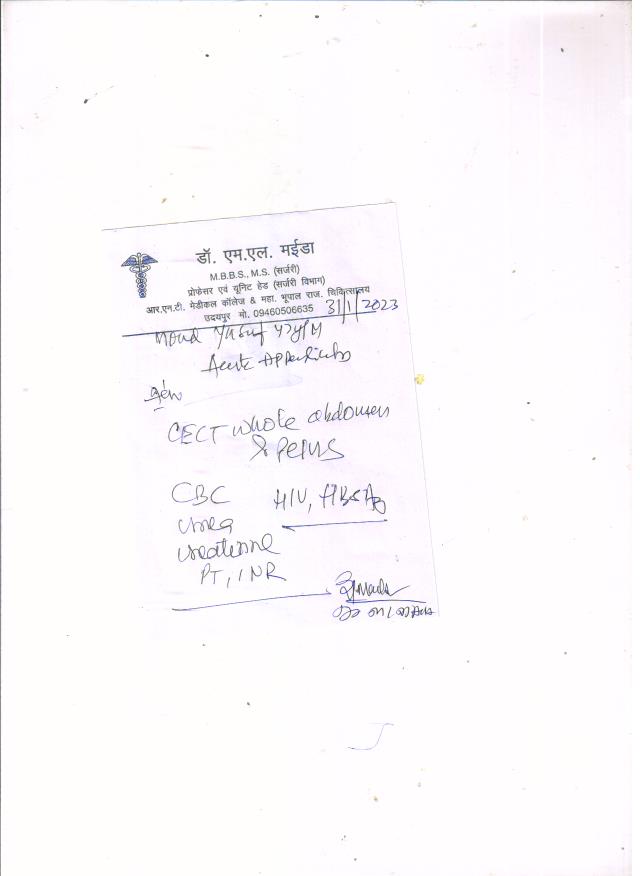 डॉ. एम.एल. मईडा
M.B.B.S., M.S. (सर्जरी)
प्रोफेसर एवं यूनिट हेड (सर्जरी विभाग)
आर.एन.टी. मेडीकल कॉलेज & महा. भूपाल राज. चिकित्सालय
उदयपुर मो. 09460506635 31/1/2023
Mohd Yusuf 47y/M
Acute Appendicitis
CECT whole abdomen
& Pelvis
CBC HIV, HBSAg
Urea
Creatinine
PT, INR